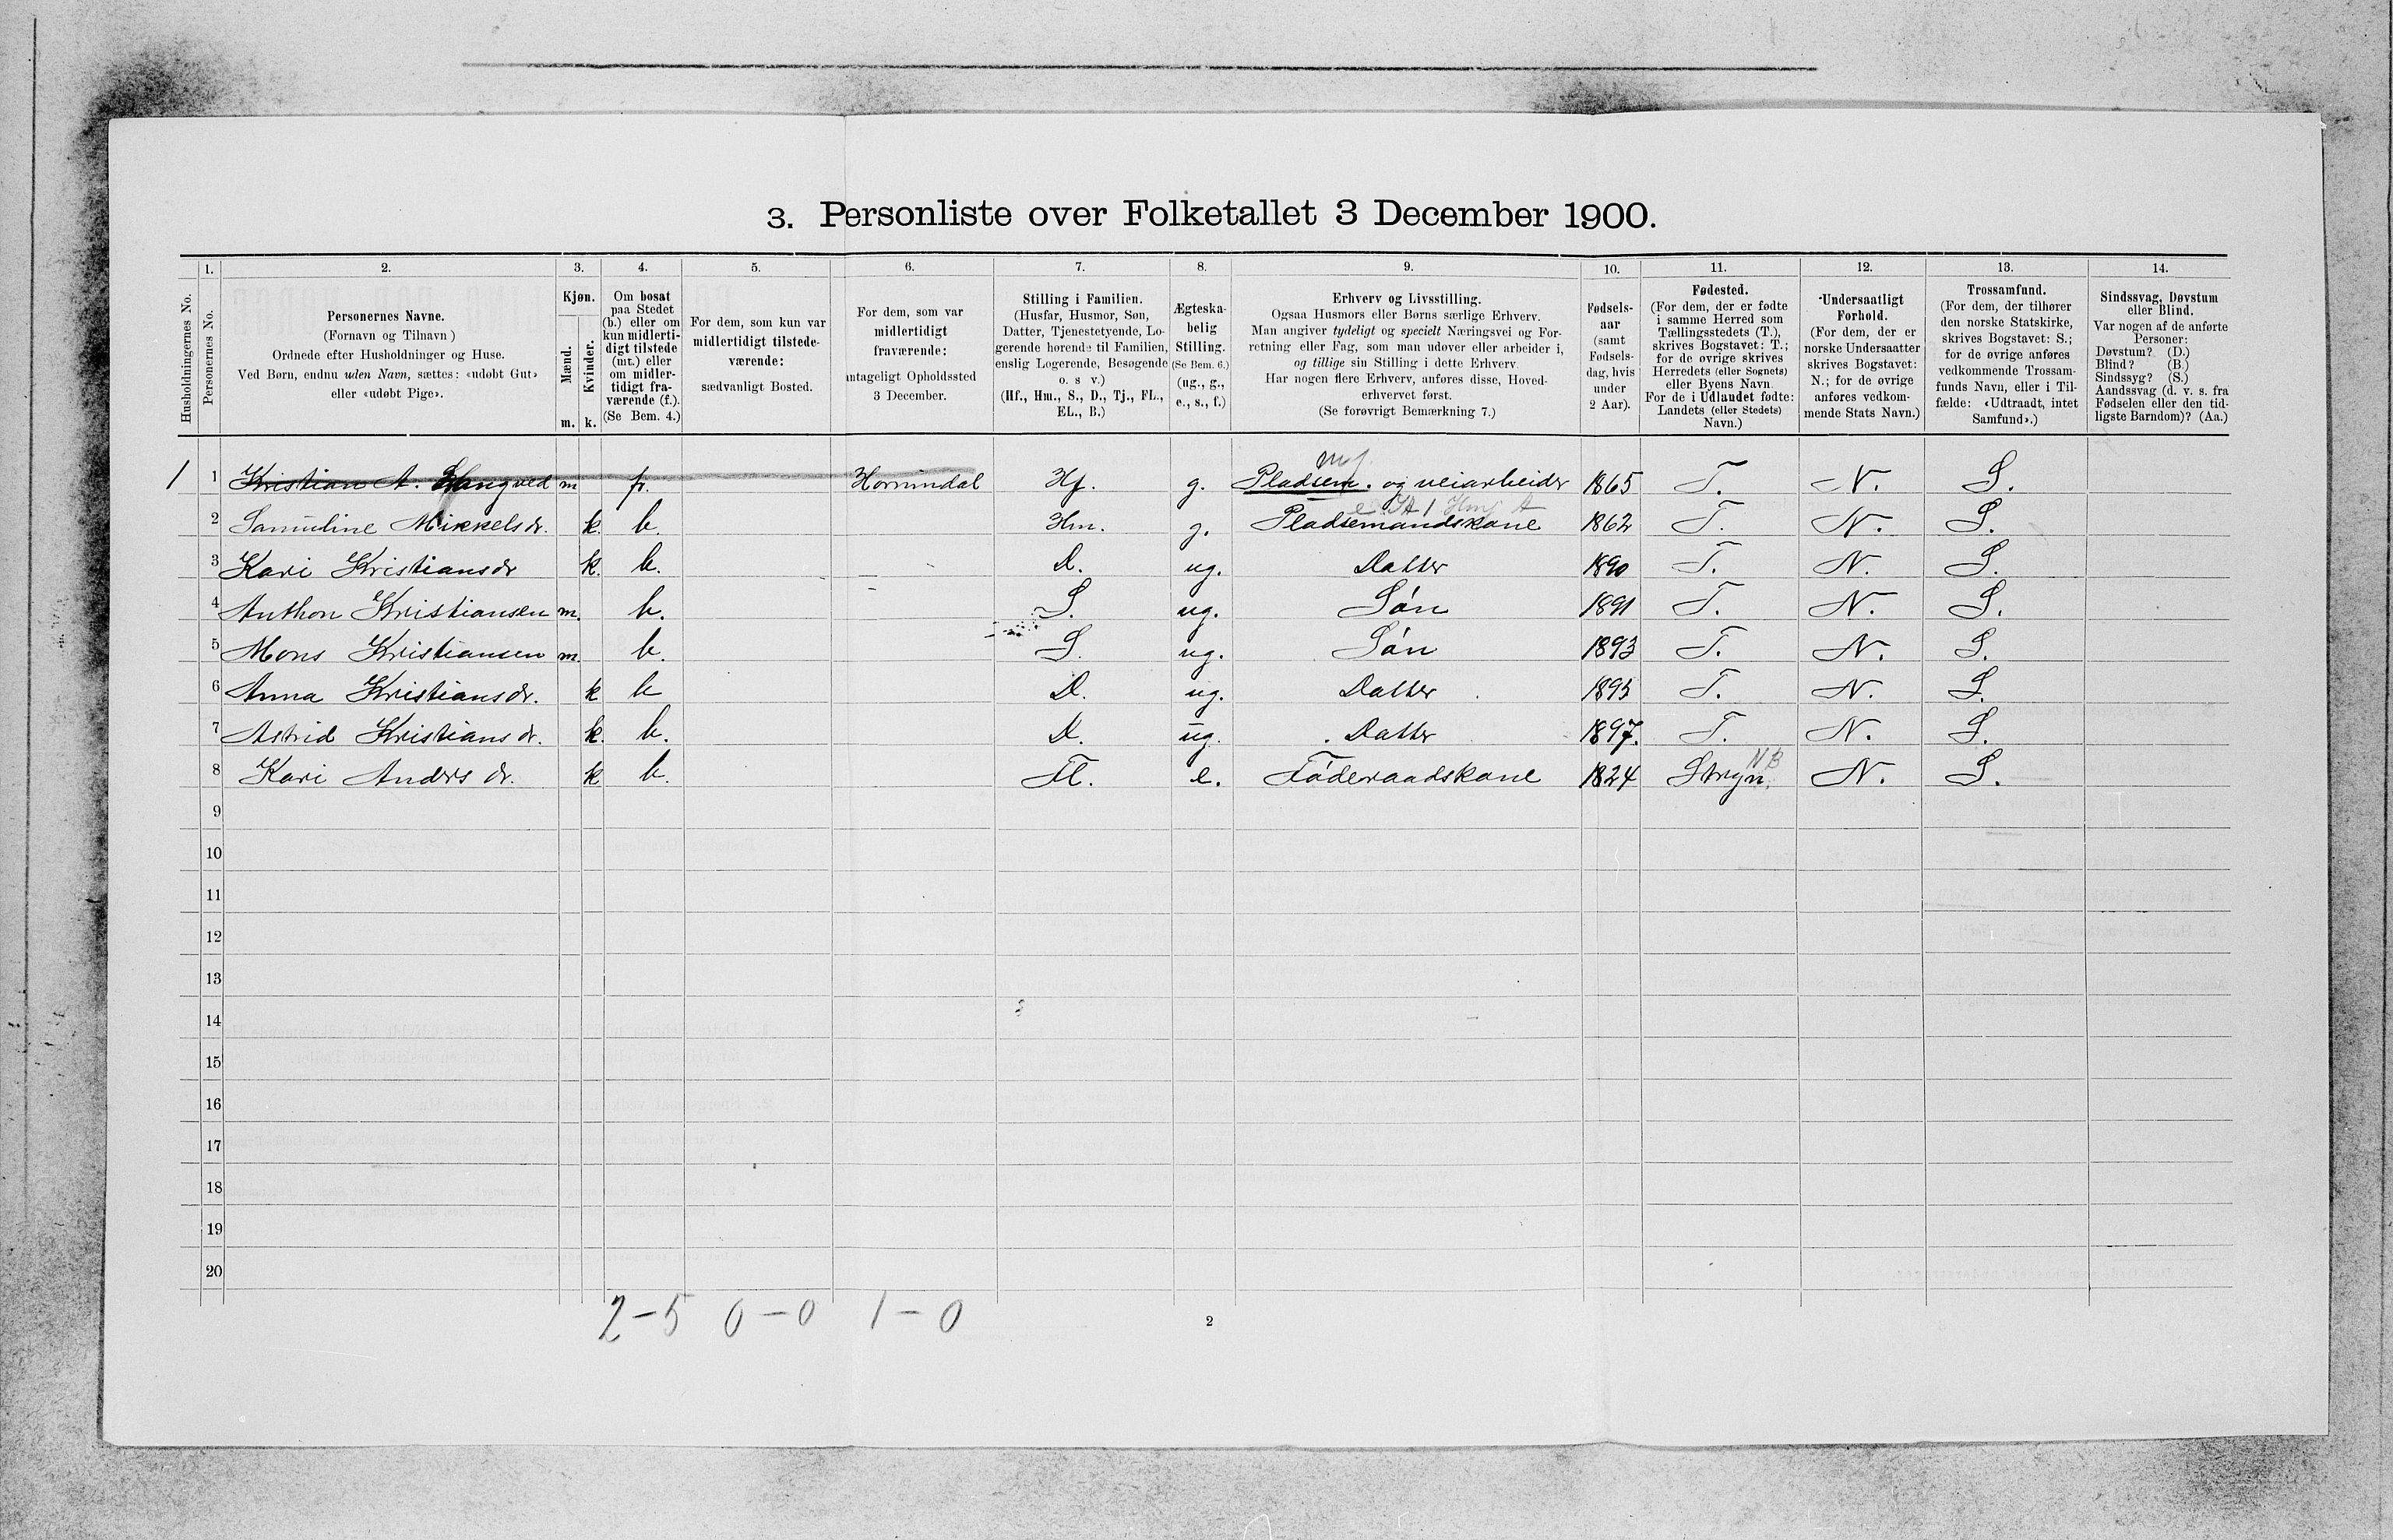 3. Personliste over Folketallet 3 December 1900.
1. 2. 3. 4. 5. 6. 7. 8. 9. 10. 11. 12. 13. 14.
Husholdningernes No.
Personernes No.
Personernes Navne.
(Fornavn og Tilnavn)
Ordnede efter Husholdninger og Huse.
Ved Børn, endnu uden Navn, sættes: «udøbt Gut»
eller «udøbt Pige».
Kjøn.
Mænd.
Kvinder.
m. k.
Om bosat
paa Stedet
(b.) eller om
kun midlerti-
digt tilstede
(mt.) eller
om midler-
tidigt fra-
værende (f.).
(Se Bem. 4.)
For dem, som kun var
midlertidigt tilstede-
værende:
sædvanligt Bosted.
For dem, som var
midlertidigt
fraværende:
antageligt Opholdssted
3 December.
Stilling i Familien.
(Husfar, Husmor, Søn,
Datter, Tjenestetyende, Lo-
gerende hørende til Familien,
enslig Logerende, Besøgende
o. s v.)
(Hf., Hm., S., D., Tj., FL.,
EL., B.)
Ægteska-
belig
Stilling.
(Se Bem. 6.)
(ug., g.,
e., s., f.)
Erhverv og Livsstilling.
Ogsaa Husmors eller Børns særlige Erhverv.
Man angiver tydeligt og specielt Næringsvei og For-
retning eller Fag, som man udøver eller arbeider i,
og tillige sin Stilling i dette Erhverv.
Har nogen flere Erhverv, anføres disse, Hoved-
erhvervet først.
(Se forøvrigt Bemærkning 7.)
Fødsels-
aar
(samt
Fødsels-
dag, hvis
under
2 Aar).
Fødested.
(For dem, der er fødte
i samme Herred som
Tællingsstedets (T.),
skrives Bogstavet: T.;
for de øvrige skrives
Herredets (eller Sognets)
eller Byens Navn.
For de i Udlandet fødte:
Landets (eller Stedets)
Navn.)
Undersaatligt
Forhold.
(For dem, der er
norske Undersaatter
skrives Bogstavet:
N.; for de øvrige
anføres vedkom-
mende Stats Navn.)
Trossamfund.
(For dem, der tilhører
den norske Statskirke,
skrives Bogstavet: S.;
for de øvrige anføres
vedkommende Trossam-
funds Navn, eller i Til-
fælde: «Udtraadt, intet
Samfund».)
Sindssvag, Døvstum
eller Blind.
Var nogen af de anførte
Personer:
Døvstum? (D.)
Blind? (B.)
Sindssyg? (S.)
Aandssvag (d. v. s. fra
Fødselen eller den tid-
ligste Barndom)? (Aa.)
1 1 Kristian A. Langved m f. Hornindal Hf. g. Pladsem. og veiarbeider 1865 T. N. S.
2 Samuline Mikkelsdr. k. b. Hm. g. Pladsemandskone 1862 T. N. S.
3 Kari Kristiansdr k. b. D. ug. Datter 1890 T. N. S.
4 Anthon Kristiansen m. b. S. ug. Søn 1891 T. N. S.
5 Mons Kristiansen m. b. S. ug. Søn 1893 T. N. S.
6 Anna Kristiansdr. k b D. ug. Datter 1895 T. N. S.
7 Astrid Kristiansdr. k. b. D. ug. Datter 1897. T. N. S.
NB
8 Kari Andersdr. k b. Fl. e. Føderaadskone 1824 Stryn. N. S.
9
10
11
12
13
14
15
16
17
18
19
20
2-5 0-0 1-0
2